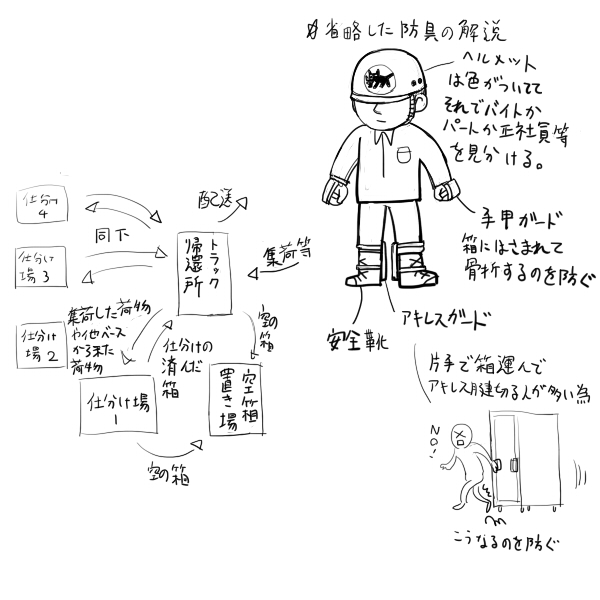 省略した防具の解説
ヘルメット
は色がついてて
それでバイトか
パートか正社員等
を見分ける。
手甲ガード
箱にはさまれて
骨折するのを防ぐ
アキレスガード
安全靴
片手で箱運んで
アキレス腱切る人が多い為
NO!
こうなるのを防ぐ
配送
仕分け
4
同下
トラック
帰還所
集荷等
仕分け
場3
集荷した荷物
や他ベース
から来た
荷物
空の箱
仕分け
場2
仕分けの
済んだ
箱
空箱
置き場
仕分け場
1
空の箱